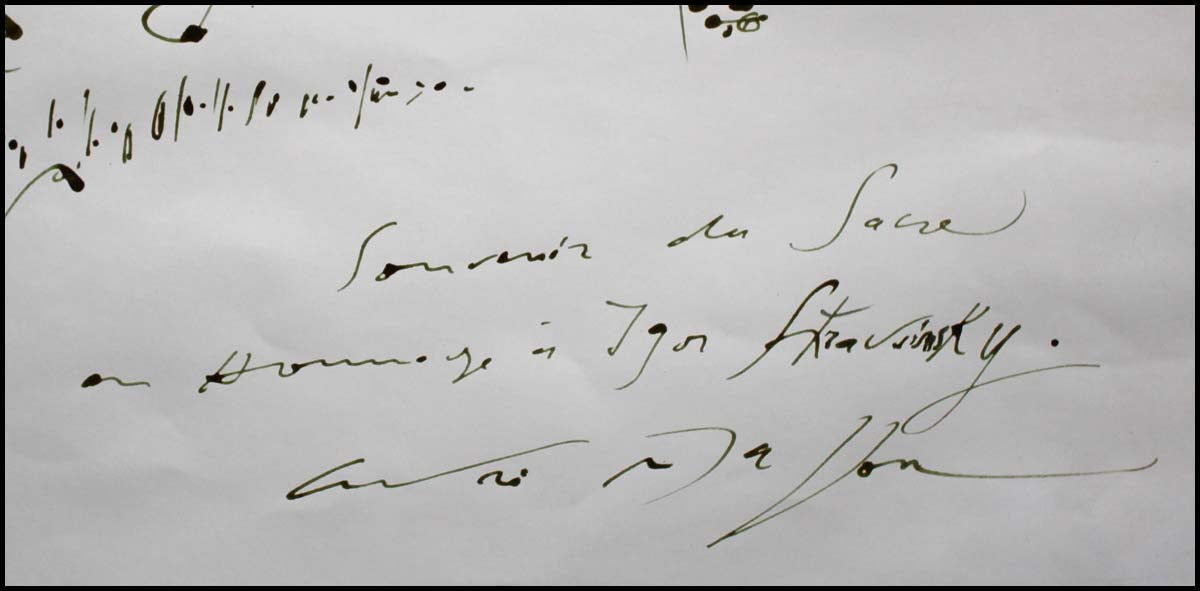 Souvenir du Sacre
en Hommage à Igor Stravinsky.
André Masson